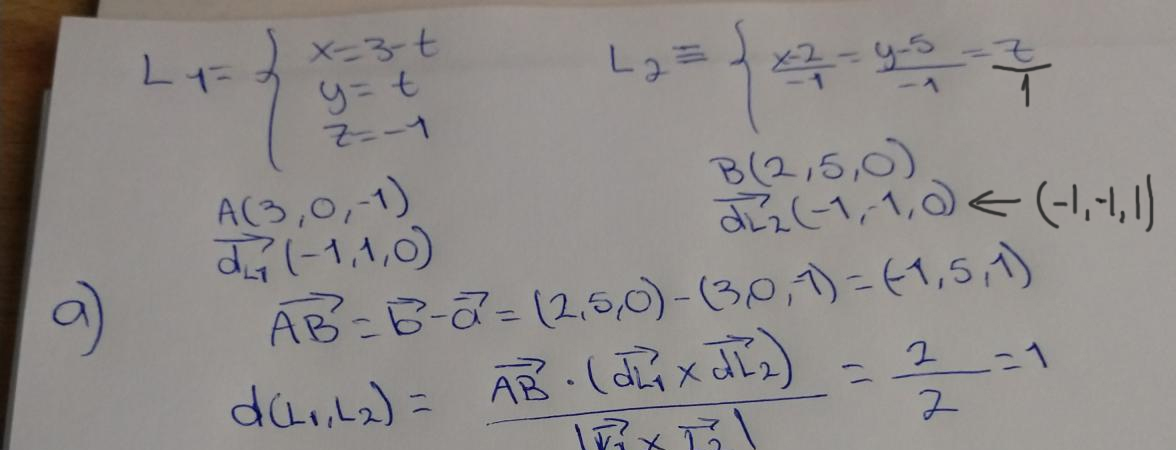 L1= { x=3-t
y= t
z=-1
L2 ≡ { x-2/-1 = y-5/-1 = z/1
A(3,0,-1)
dL1 (-1,1,0)
B(2,5,0)
dL2 (-1,-1,0) ← (-1,-1,1)
a) AB = b - a = (2,5,0) - (3,0,-1) = (-1,5,1)
d(L1,L2) = AB · (dL1 x dL2) / = 2/2 = 1